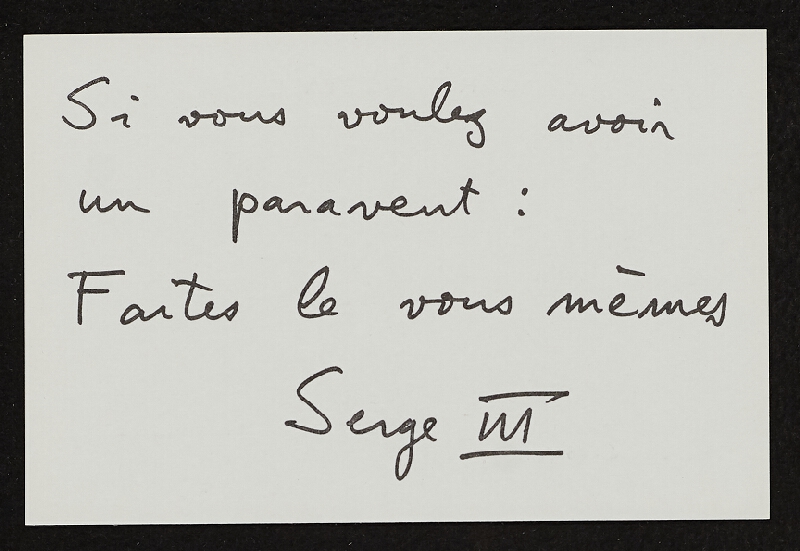 Si vous voulez avoir
un paravent :
Faites le vous mèmes
Serge III